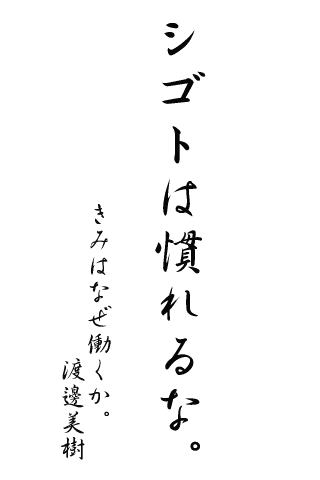 シゴトは慣れるな。
きみはなぜ働くか。
渡邊美樹